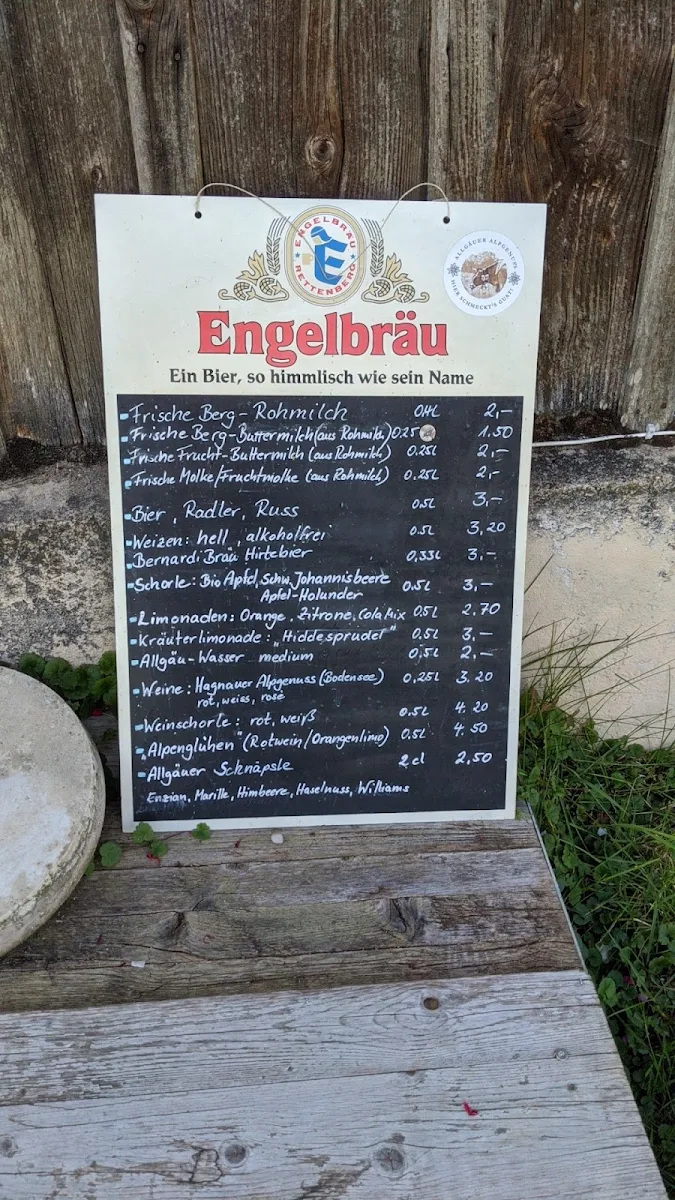 ENGELBRÄU
RETTENBERG
ALLGÄUER ALPGENUSS
HIER SCHMECKT'S GUAT!
Engelbräu
Ein Bier, so himmlisch wie sein Name
Frische Berg-Rohmilch 0,4L 2,-
Frische Berg-Buttermilch (aus Rohmilch) 0.25 1.50
Frische Frucht-Buttermilch (aus Rohmilch) 0.25L 2,-
Frische Molke/Fruchtmolke (aus Rohmilch) 0,25L 2,-
Bier, Radler, Russ 0,5L 3,-
Weizen: hell, alkoholfrei 0.5L 3,20
Bernardi Bräu Hirtebier 0,33L 3,-
Schorle: Bio Apfel, Schw. Johannisbeere
Apfel-Holunder 0,5L 3,-
Limonaden: Orange, Zitrone, Cola Mix 0,5L 2.70
Kräuterlimonade: "Hiddesprudel" 0,5L 3,-
Allgäu-Wasser medium 0,5L 2,-
Weine: Hagnauer Alpgenuss (Bodensee) 0,25L 3.20
rot, weiss, rosé
Weinschorle: rot, weiß 0.5L 4.20
"Alpenglühen" (Rotwein/Orangenlimo) 0.5L 4.50
Allgäuer Schnäpsle 2 cl 2,50
Enzian, Marille, Himbeere, Haselnuss, Williams